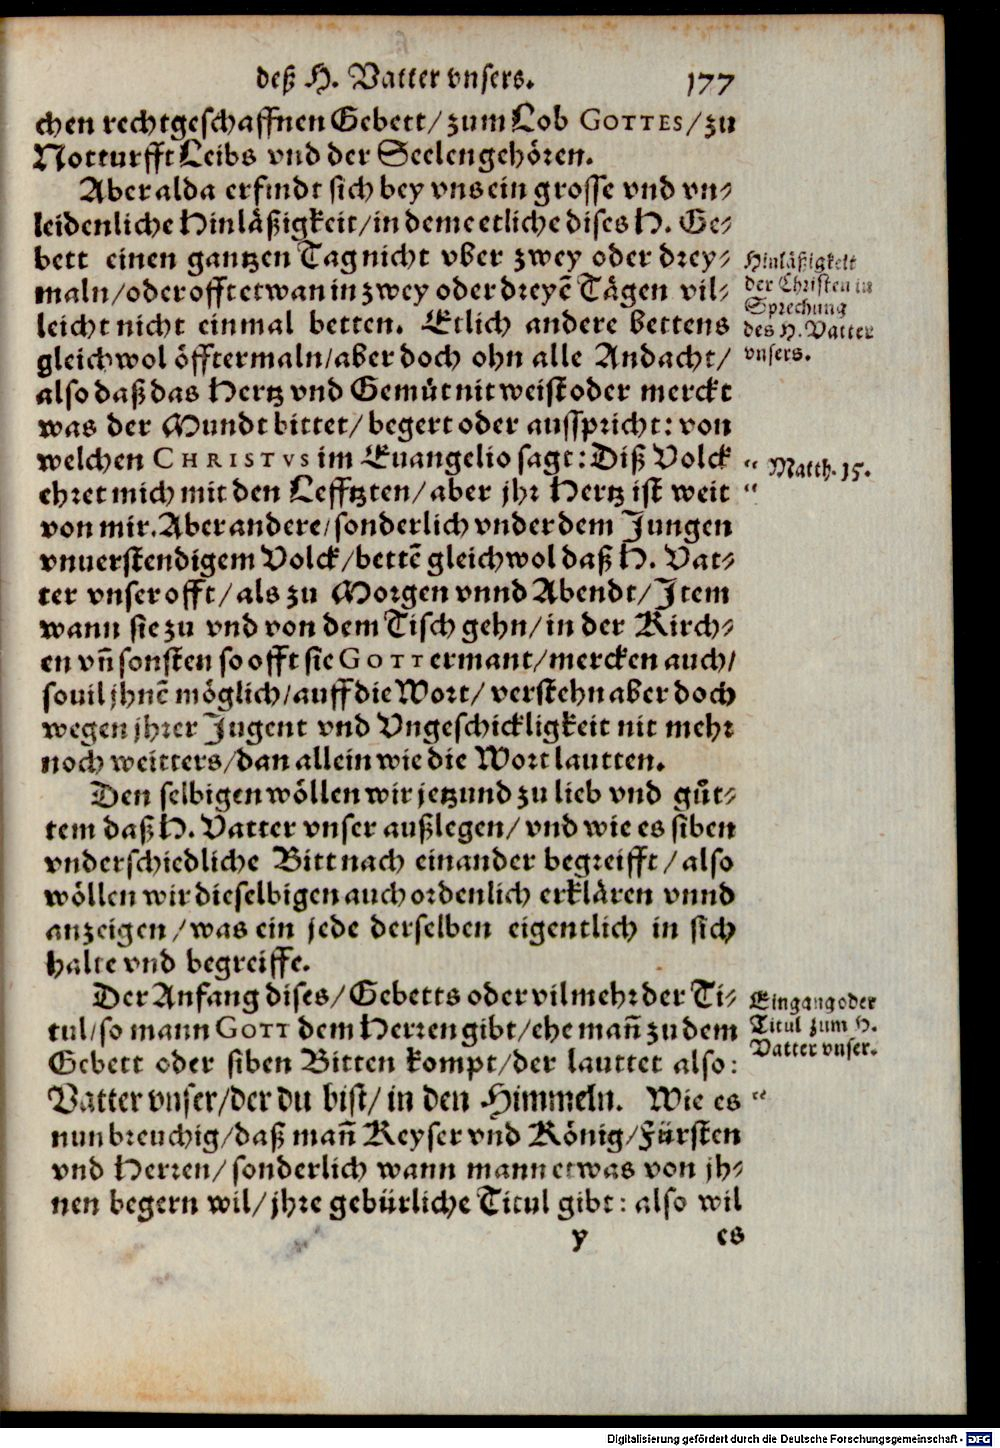 deß H. Vatter vnsers. 177
chen rechtgeschaffnen Gebett/ zum Lob GOTTES/ zu
Notturfft Leibs vnd der Seelen gehören.
Aber alda erfindt sich bey vns ein grosse vnd vn-
leidenliche Hinläßigkeit/ in deme etliche dises H. Ge-
bett einen gantzen Tag nicht vber zwey oder drey-
maln/ oder offt etwan in zwey oder dreyē Tägen vil-
leicht nicht einmal betten. Etlich andere bettens
gleichwol öfftermaln/ aber doch ohn alle Andacht/
also daß das Hertz vnd Gemüt nit weist oder merckt
was der Mundt bittet/ begert oder ausspricht: von
welchen CHRISTVS im Euangelio sagt: Diß Volck
ehret mich mit den Lefftzten/ aber jhr Hertz ist weit
von mir. Aber andere/ sonderlich vnder dem Jungen
vnuerstendigem Volck/ bettē gleichwol daß H. Vat-
ter vnser offt/ als zu Morgen vnnd Abendt/ Jtem
wann sie zu vnd von dem Tisch gehn/ in der Kirch-
en vñ sonsten so offt sie GOTT ermant/ mercken auch/
souil jhnē möglich/ auff die Wort/ verstehn aber doch
wegen jhrer Jugent vnd Vngeschickligkeit nit mehr
noch weitters/ dan allein wie die Wort lautten.
Den selbigen wöllen wir jetzund zu lieb vnd güt-
tem daß H. Vatter vnser außlegen/ vnd wie es siben
vnderschiedliche Bitt nach einander begreifft/ also
wöllen wir dieselbigen auch ordenlich erklären vnnd
anzeigen/ was ein jede derselben eigentlich in sich
halte vnd begreiffe.
Der Anfang dises/ Gebetts oder vilmehr der Ti-
tul/ so mann GOTT dem Herren gibt/ ehe mañ zu dem
Gebett oder siben Bitten kompt/ der lauttet also:
Vatter vnser/ der du bist/ in den Himmeln. Wie es
nun breuchig/ daß mañ Keyser vnd König/ Fürsten
vnd Herren/ sonderlich wann mann etwas von jh-
nen begern wil/ jhre gebürliche Titul gibt: also wil
y es
Hinläßigkeit
der Christen in
Sprechung
des H. Vatter
vnsers.
“ Matth. 15.
“
Eingang oder
Titul zum H.
Vatter vnser.
“
Digitalisierung gefördert durch die Deutsche Forschungsgemeinschaft - DFG